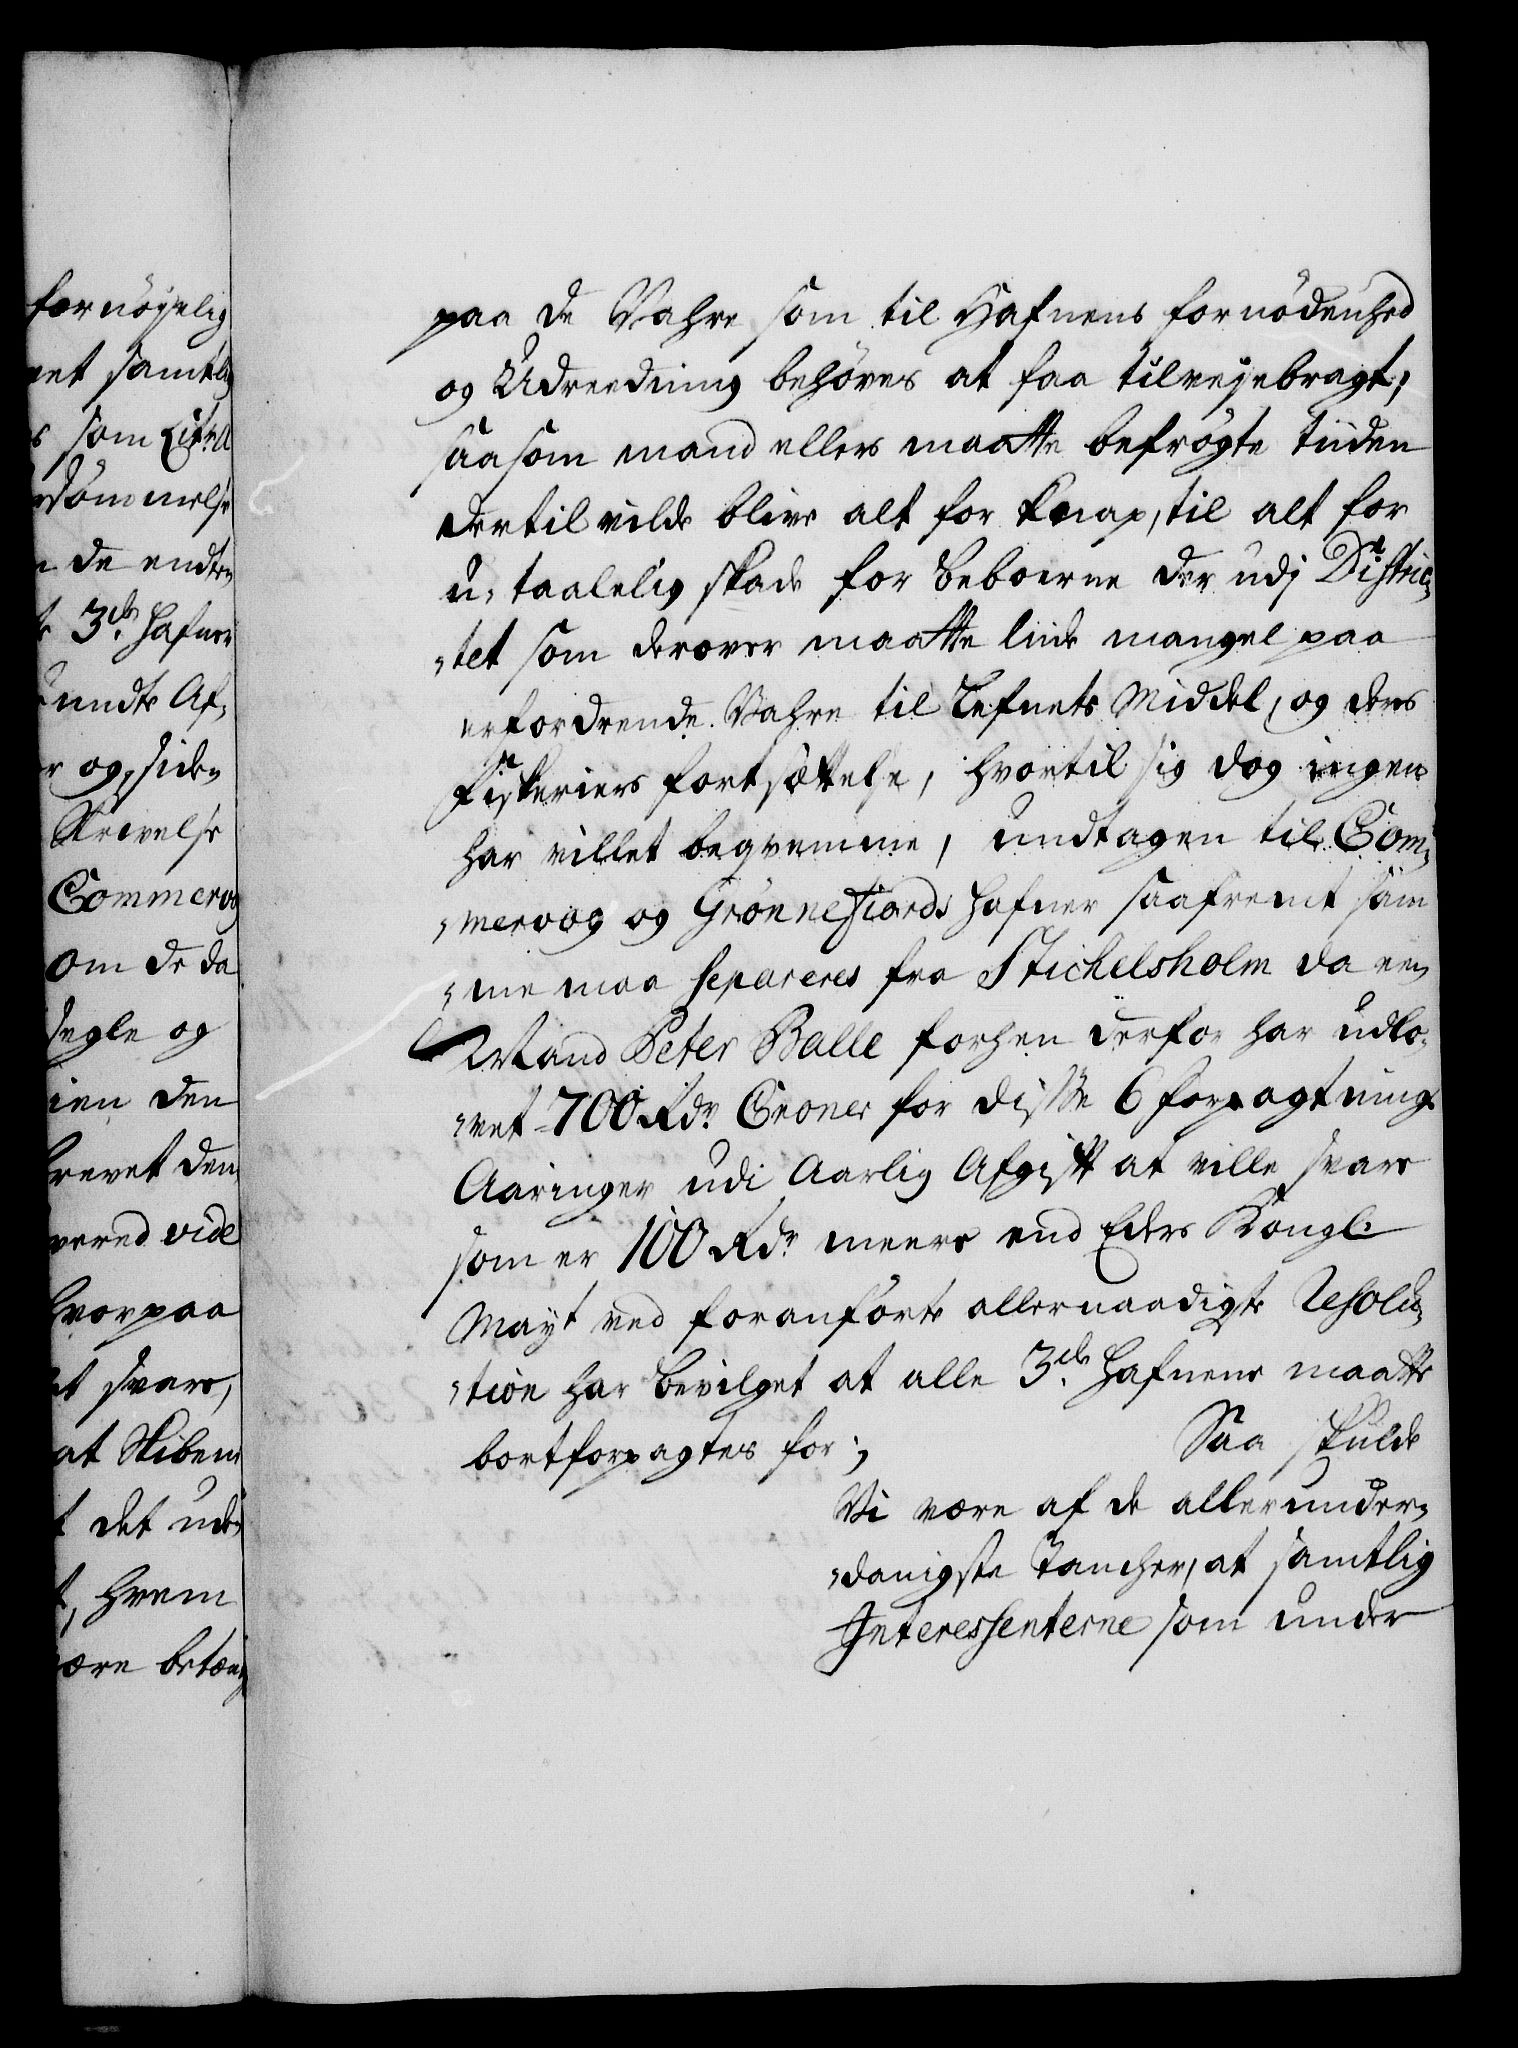 fornöyelig
vet samtlig
s som Litr. A
dömmelse
de endte
3de Hafner
undte Af,
r og, siden
Skrivelse
Commervog
om de da
segle og
ien den
brevet den
vered vide
hvorpaa
at svare,
at Skiben
t det udi
t, hvem
ære betæn
paa de Vahre som til Hafnens fornödenhed
og Udreedning behöves at faa tilvejebragt;
saasom mand ellers maatte befrögte tiiden
dertil vilde blive alt for knap, til alt for
u, taalelig skade for Beboerne der udj Distric,
,tet som derover maatte liide mangel paa
erfordrende Vahre til Lefnets Middel, og deres
Fiskeriers fortsættelse, hvortil sig dog ingen
har villet beqvemme, undtagen til Com,
,mervog og Grönnefiords Hafner saafremt sam
,me maa separeres fra Stichelsholm da een
Mand Peter Balle forhen derfor har udlo,
,vet 700 Rdr Croner for disse 6 forpagtnings
Aaringer udi Aarlig Afgift at ville svare
som er 100 Rdr meere end Eders Kongl:
Mayt ved foranförte allernaadigste Resolu,
,tion har bevilget at alle 3de Hafnene maatte
bortforpagtes for;
Saa skulde
Vi være af de allerunder,
,danigste Tancher, at samtlig
Interessenterne som under